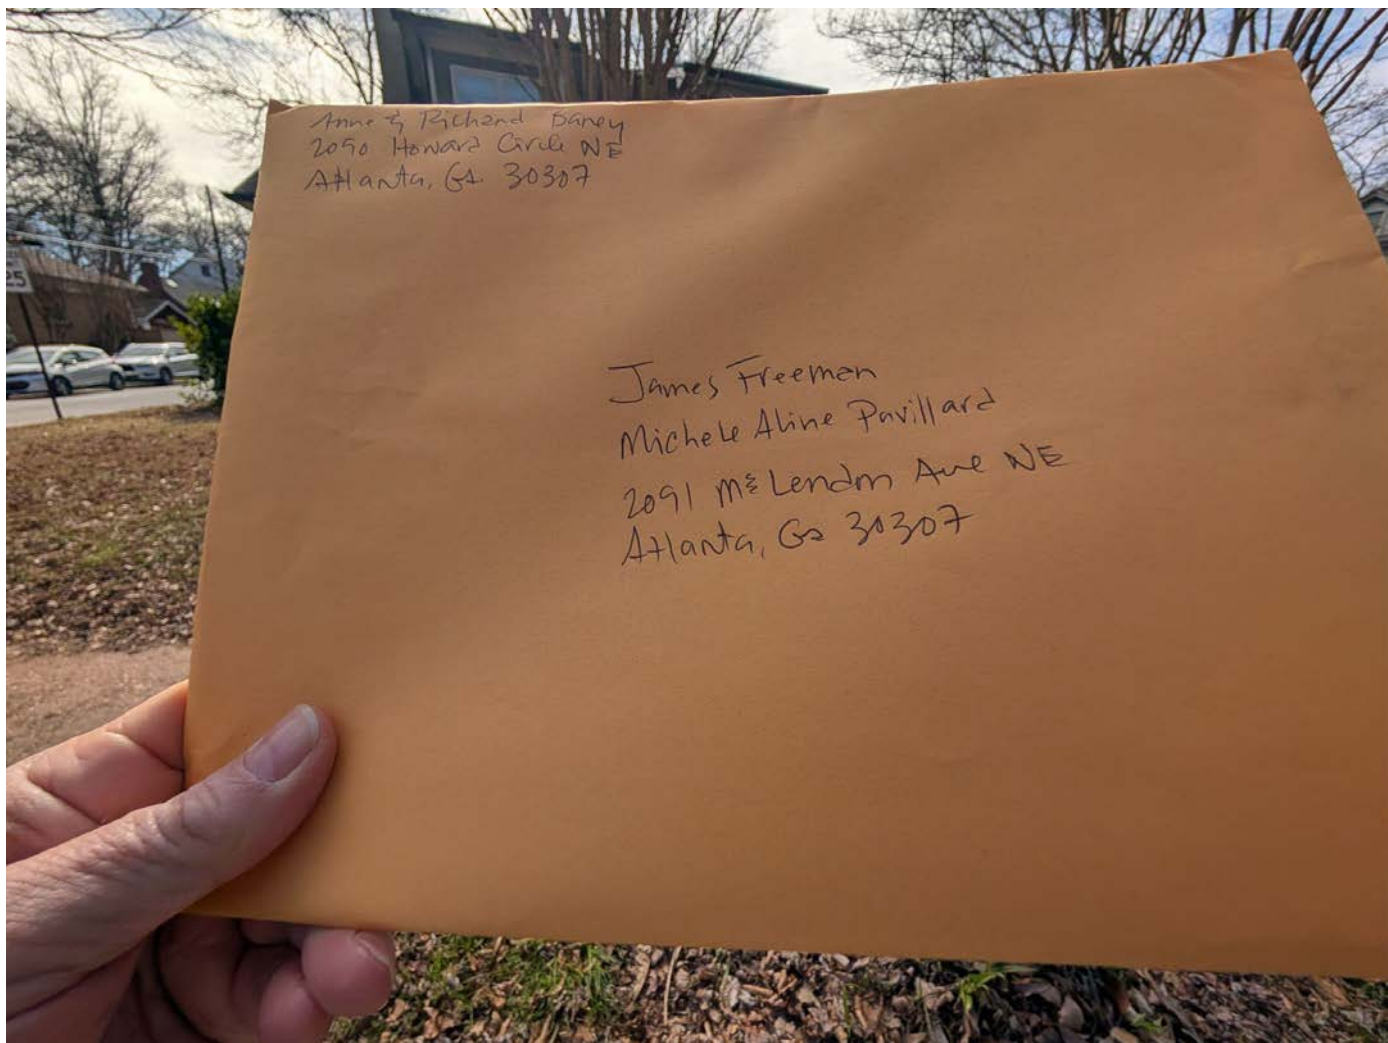 Anne & Richard Baney
2090 Howard Circle NE
Atlanta, Ga. 30307
James Freeman
Michele Aline Pavillard
2091 McLendon Ave NE
Atlanta, Ga 30307
25